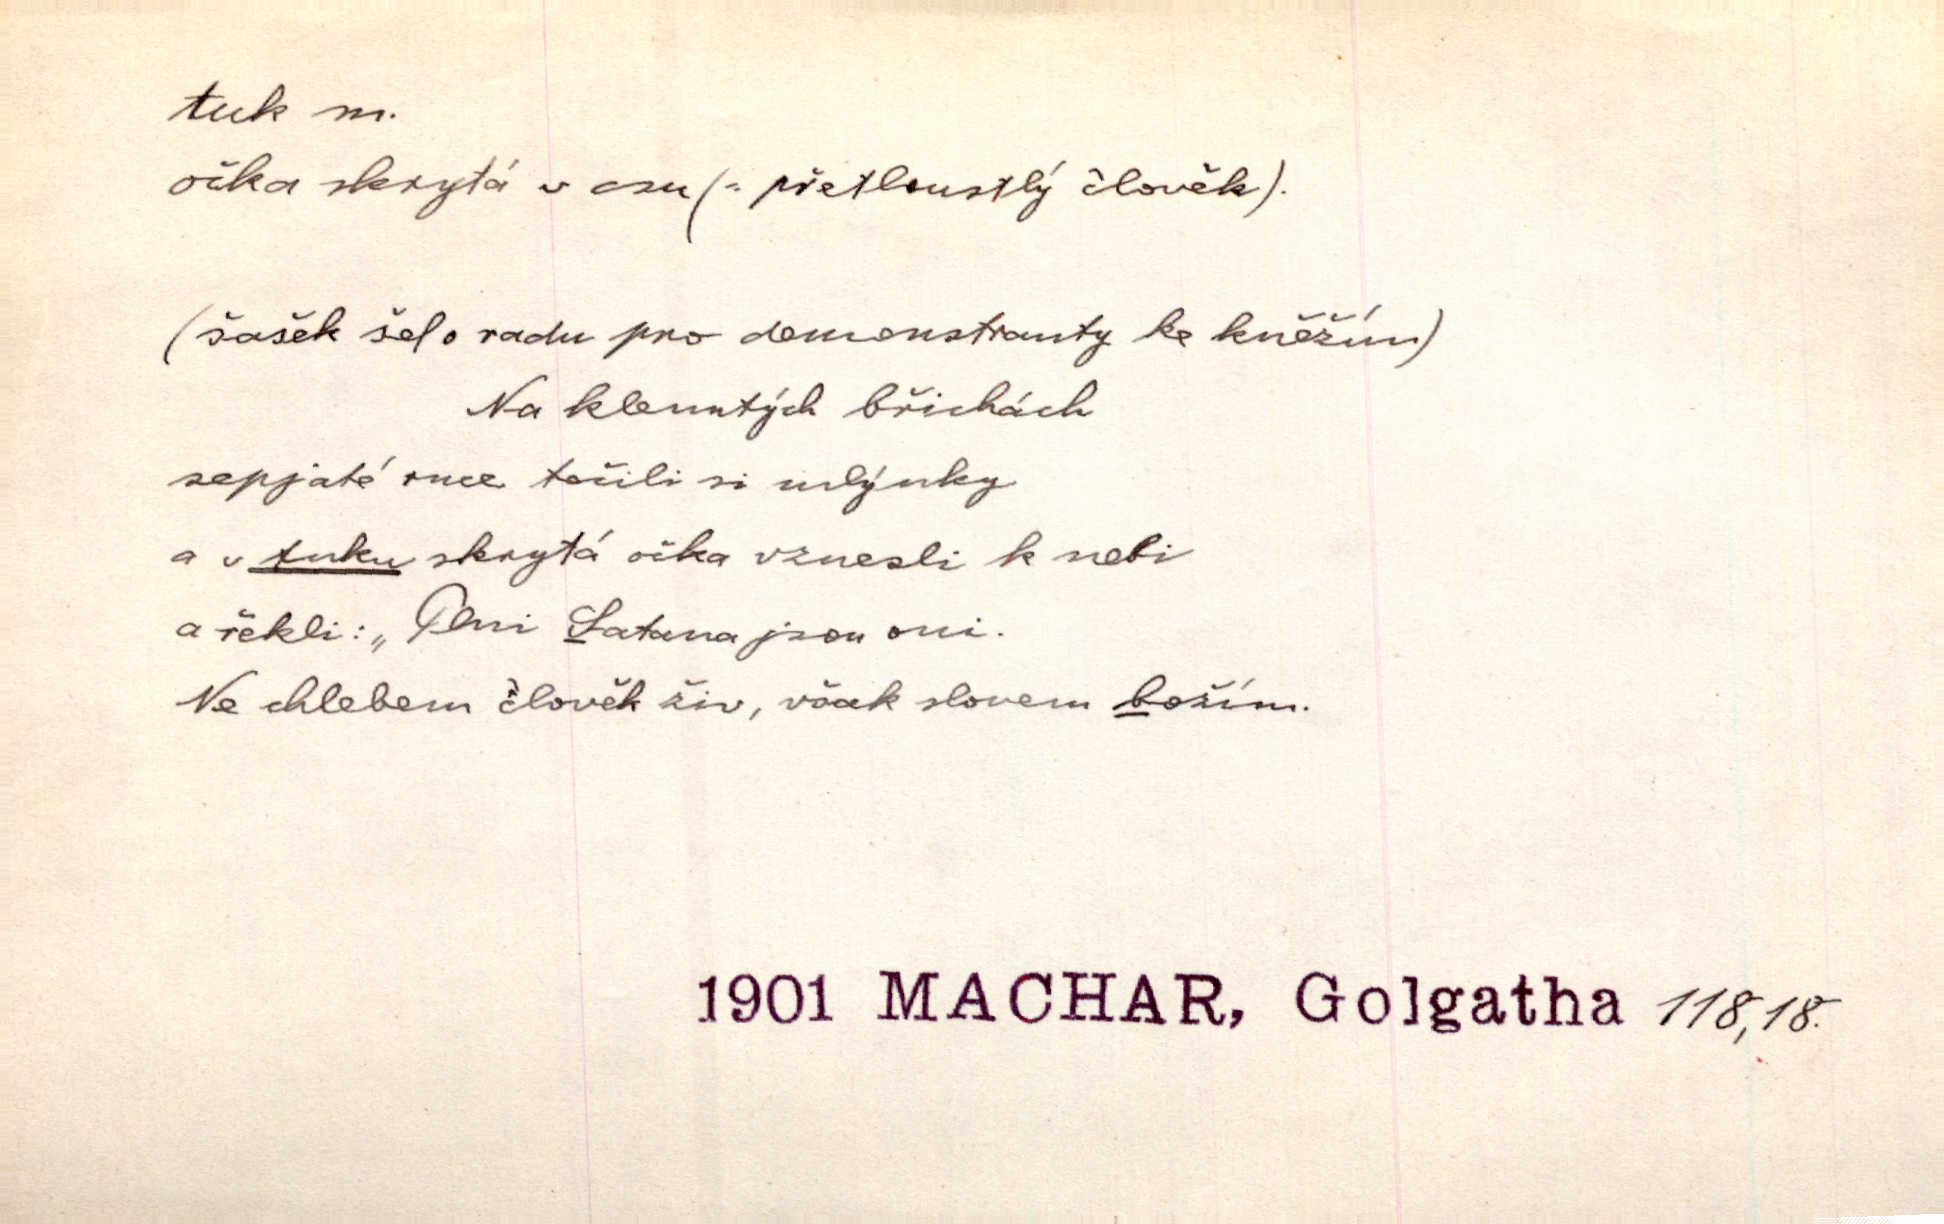 tuk m.
očka skrytá v csu (= přetloustlý člověk).
(šašek šel o radu pro demonstranty ke kněžím)
Na klenutých břichách
sepjaté ruce točili si mlýnky
a v tuku skrytá očka vznesli k nebi
a řekli: „Plni Satana jsou oni.
Ne chlebem člověk živ, však slovem božím.
1901 MACHAR, Golgatha 118,18.